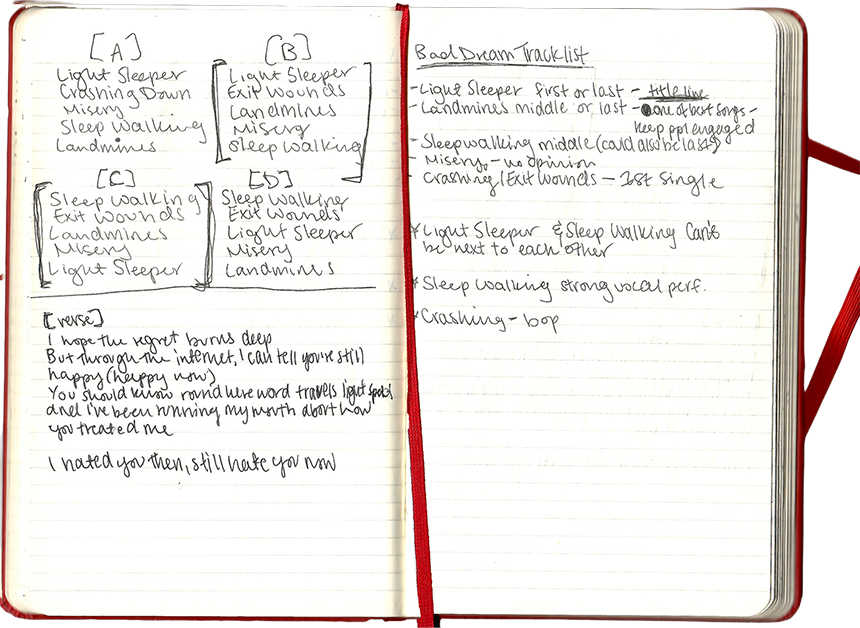 [A]
Light Sleeper
Crashing Down
Misery
Sleep Walking
Landmines
[B]
Light Sleeper
Exit Wounds
Landmines
Misery
Sleep Walking
[C]
Sleep Walking
Exit Wounds
Landmines
Misery
Light Sleeper
[D]
Sleep Walking
Exit Wounds
Light Sleeper
Misery
Landmines
[verse]
I hope the regret burns deep
But through the internet, I can tell you're still
happy (happy now)
You should know round here word travels light speed
and I've been running my mouth about how
you treated me
I hated you then, still hate you now
Bad Dream Tracklist
- Light Sleeper first or last - title line
- Landmines middle or last - one of best songs -
keep ppl engaged
- Sleepwalking middle (could also be last)
- Misery - no opinion
- Crashing/Exit Wounds - 1st single
* Light Sleeper & Sleep Walking Can't
be next to each other
* Sleep Walking strong vocal perf.
* Crashing - bop